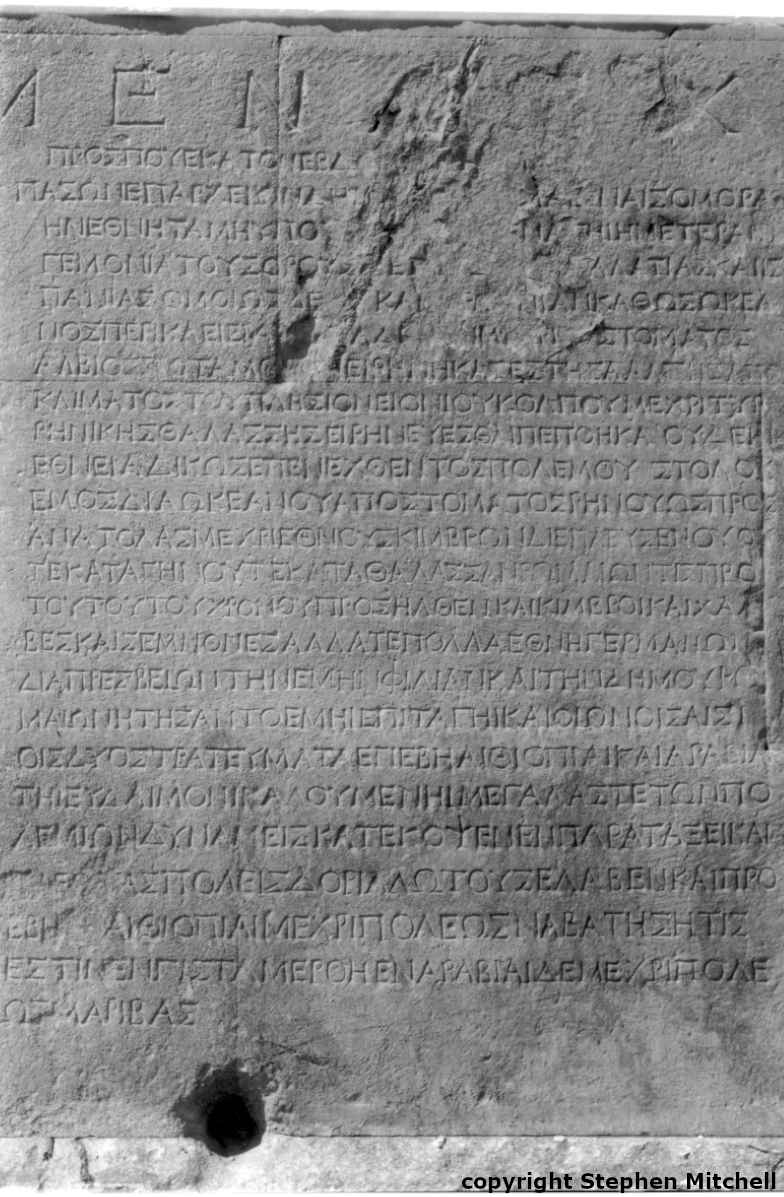 ΜΕΝ Κ
ΠΡΟΣΠΟΥΕΙΚΑΤΟΝΕΡΔΥ
ΠΑΣΩΝΕΠΑΡΧΕΙΩΝΔΗΜ ΑΙΣΟΜΟΡΑ
ΗΝΕΘΝΗΤΑΜΗΥΠΟ ΤΗΙΗΜΕΤΕΡΑ
ΓΕΜΟΝΙΑΤΟΥΣΟΡΟΥΣ ΓΑΛΑΤΙΑΣΚΑΙΙΣ
ΠΑΝΙΑΣΟΜΟΙΩΣΔΕ ΚΑΙ ΚΑΘΩΣΩΚΕΑ
ΝΟΣΠΕΡΙΚΛΕΙΕΙ ΣΤΟΜΑΤΟΣ
ΑΛΒΙΟΣΠΟΤΑΜΟ ΕΙΡΗΝΗΚΑΤΕΣΤΗΣΑΑΛΠΗΣΑΠΟ
ΚΛΙΜΑΤΟΣΤΟΥΠΛΗΣΙΟΝΕΙΟΝΙΟΥΚΟΛΠΟΥΜΕΧΡΙΤΥΡ
ΡΗΝΙΚΗΣΘΑΛΑΣΣΗΣΕΙΡΗΝΕΥΕΣΘΑΙΠΕΠΟΗΚΑ ΟΥΔΕΝ
ΕΘΝΕΙΑΔΙΚΩΣΕΠΕΝΕΧΘΕΝΤΟΣΠΟΛΕΜΟΥ ΣΤΟΛΟΣ
ΕΜΟΣΔΙΑΩΚΕΑΝΟΥΑΠΟΣΤΟΜΑΤΟΣΡΗΝΟΥΩΣΠΡΟΣ
ΑΝΑΤΟΛΑΣΜΕΧΡΙΕΘΝΟΥΣΚΙΜΒΡΩΝΔΙΕΠΛΕΥΣΕΝΟΥΟ
ΤΕΚΑΤΑΓΗΝΟΥΤΕΚΑΤΑΘΑΛΑΣΣΑΝΡΩΜΑΙΩΝΤΙΣΠΡΟ
ΤΟΥΤΟΥΤΟΥΧΡΟΝΟΥΠΡΟΣΗΛΘΕΝΚΑΙΚΙΜΒΡΟΙΚΑΙΧΑΛ
ΒΕΣΚΑΙΣΕΜΝΟΝΕΣΑΛΛΑΤΕΠΟΛΛΑΕΘΝΗΓΕΡΜΑΝΩΝ
ΔΙΑΠΡΕΣΒΕΙΩΝΤΗΝΕΜΗΝΦΙΛΙΑΝΚΑΙΤΗΝΔΗΜΟΥΡΩ
ΜΑΙΩΝΗΤΗΣΑΝΤΟΕΜΗΙΕΠΙΤΑΓΗΙΚΑΙΟΙΩΝΟΙΣΑΙΣΙ
ΟΙΣΔΥΟΣΤΡΑΤΕΥΜΑΤΑΕΠΕΒΗΑΙΘΙΟΠΙΑΙΚΑΙΑΡΑΒΙΑΙ
ΤΗΙΕΥΔΑΙΜΟΝΙΚΑΛΟΥΜΕΝΗΙΜΕΓΑΛΑΣΤΕΤΩΝΠΟ
ΛΕΜΙΩΝΔΥΝΑΜΕΙΣΚΑΤΕΚΟΨΕΝΕΝΠΑΡΑΤΑΞΕΙΚΑΙ
ΑΣΠΟΛΕΙΣΔΟΡΙΑΛΩΤΟΥΣΕΛΑΒΕΝΚΑΙΠΡΟ
ΕΒΗ ΑΙΘΙΟΠΙΑΙΜΕΧΡΙΠΟΛΕΩΣΝΑΒΑΤΗΣΗΤΙΣ
ΕΣΤΙΝΕΝΓΙΣΤΑΜΕΡΟΗΙΕΝΑΡΑΒΙΑΙΔΕΜΕΧΡΙΠΟΛΕ
ΩΣΜΑΡΙΒΑΣ
copyright Stephen Mitchell